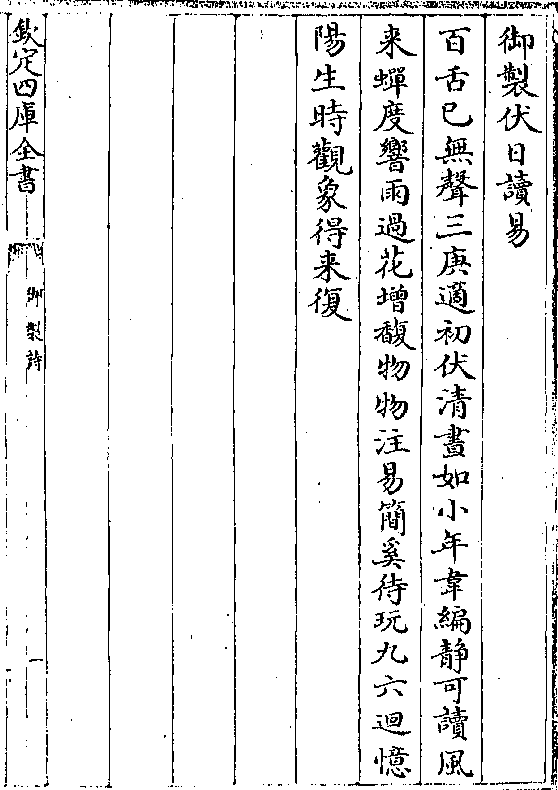 御製伏日讀易
百舌已無聲三庚適初伏清晝如小年韋編静可讀風
来蟬度響雨過花增馥物物注易簡奚待玩九六迴憶
陽生時觀象得来復
欽定四庫全書
御製詩
一